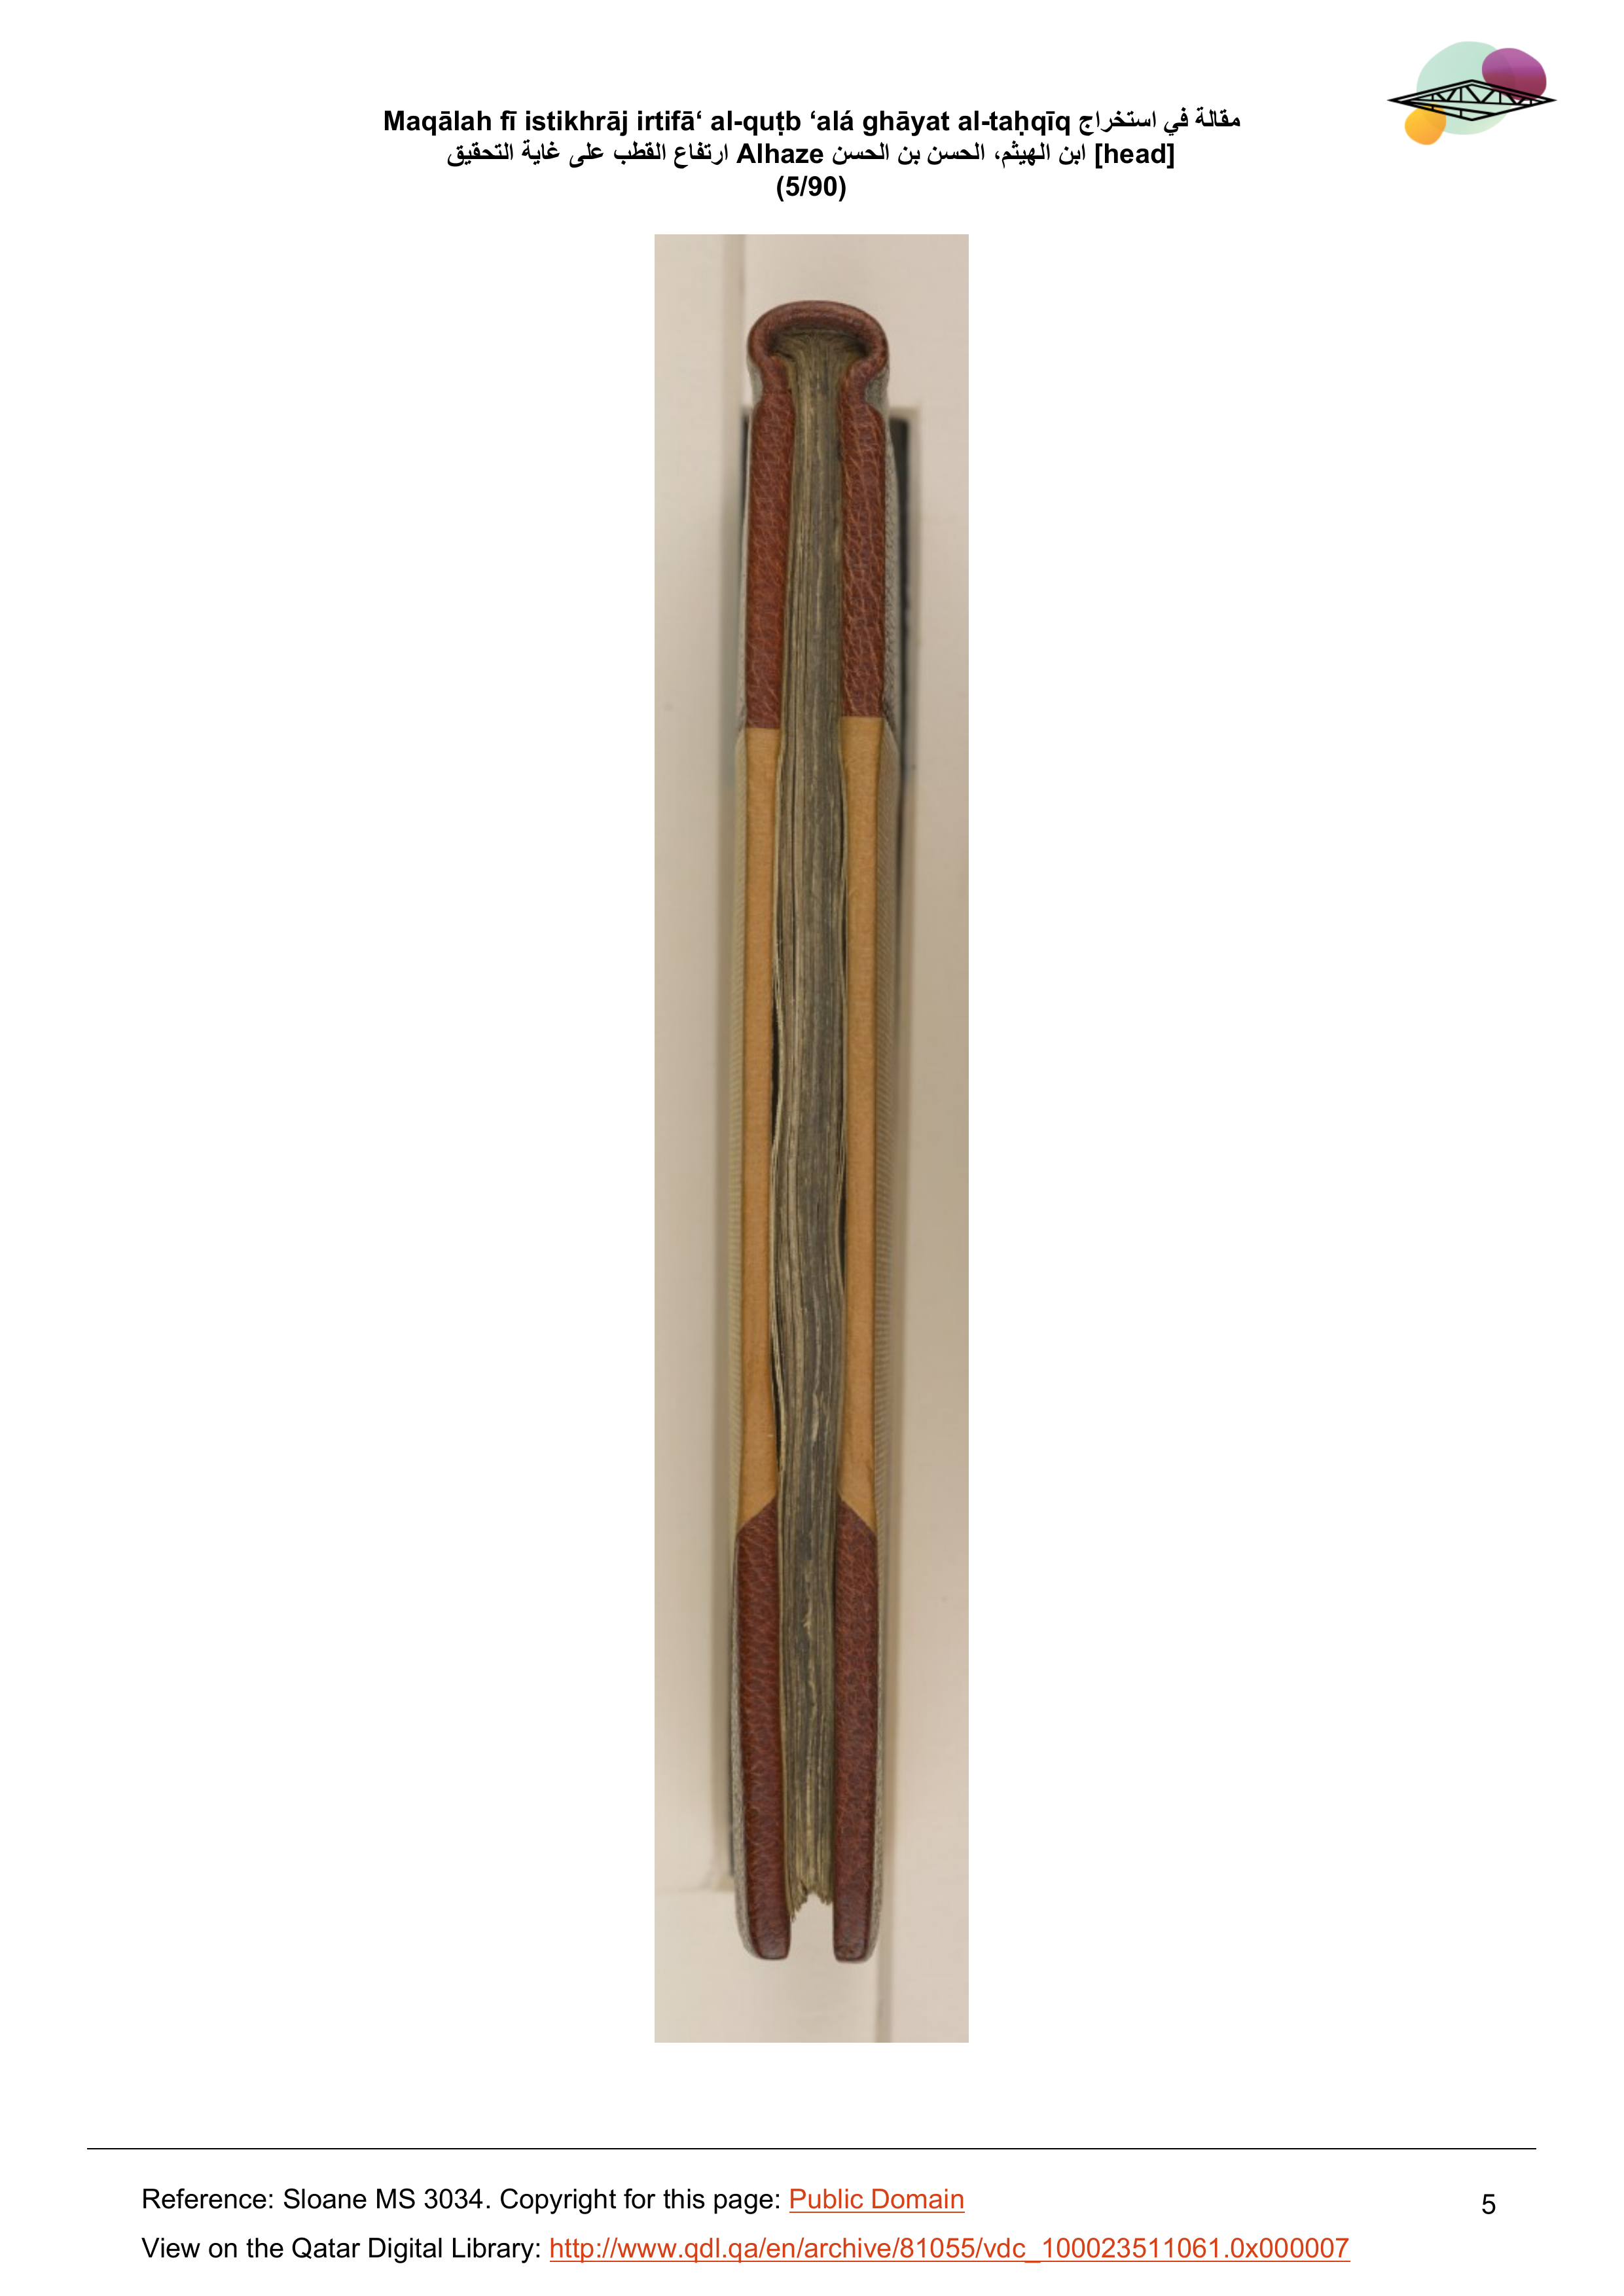 Maqālah fī istikhrāj irtifā‘ al-quṭb ‘alá ghāyat al-taḥqīq مقالة في استخراج
ارتفاع القطب على غاية التحقيق Alhaze ابن الهيثم، الحسن بن الحسن [head]
(5/90)
Reference: Sloane MS 3034. Copyright for this page: Public Domain
5
View on the Qatar Digital Library: http://www.qdl.qa/en/archive/81055/vdc_100023511061.0x000007